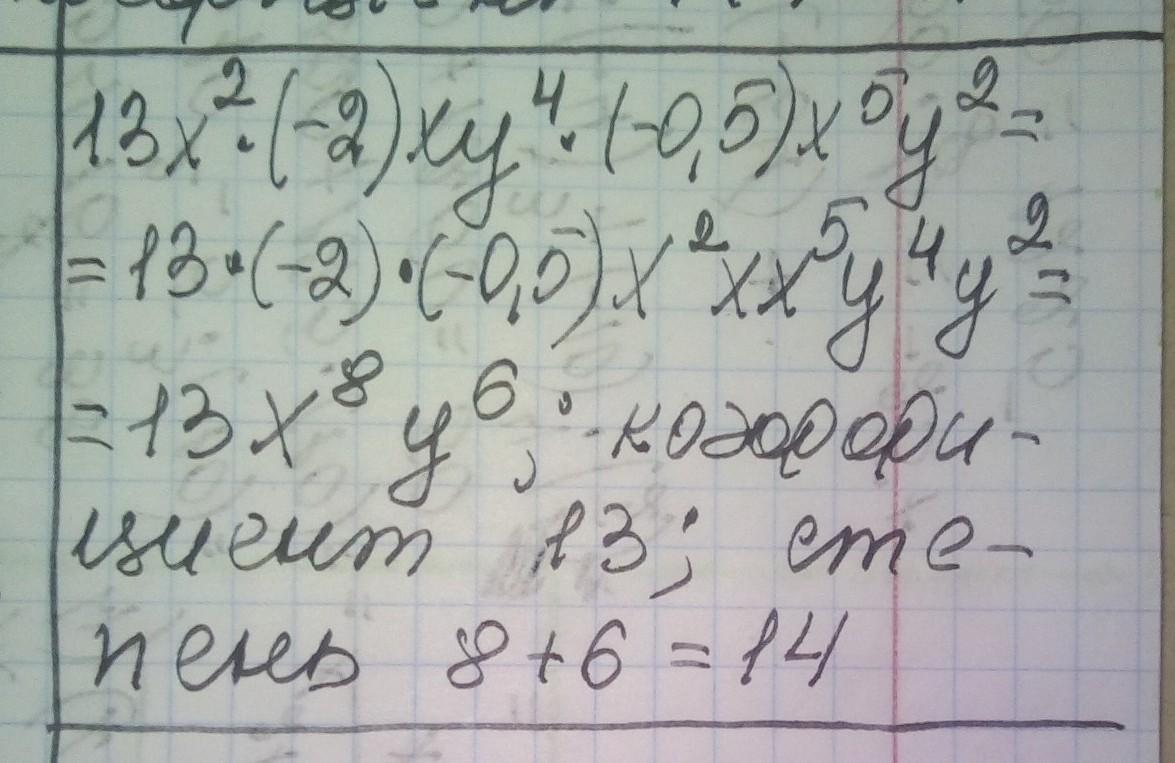 13x²·(-2)xy⁴·(-0,5)x⁵y²=
=13·(-2)·(-0,5)x²xx⁵y⁴y²=
=13x⁸y⁶; коэффи-
циент 13; сте-
пень 8+6=14